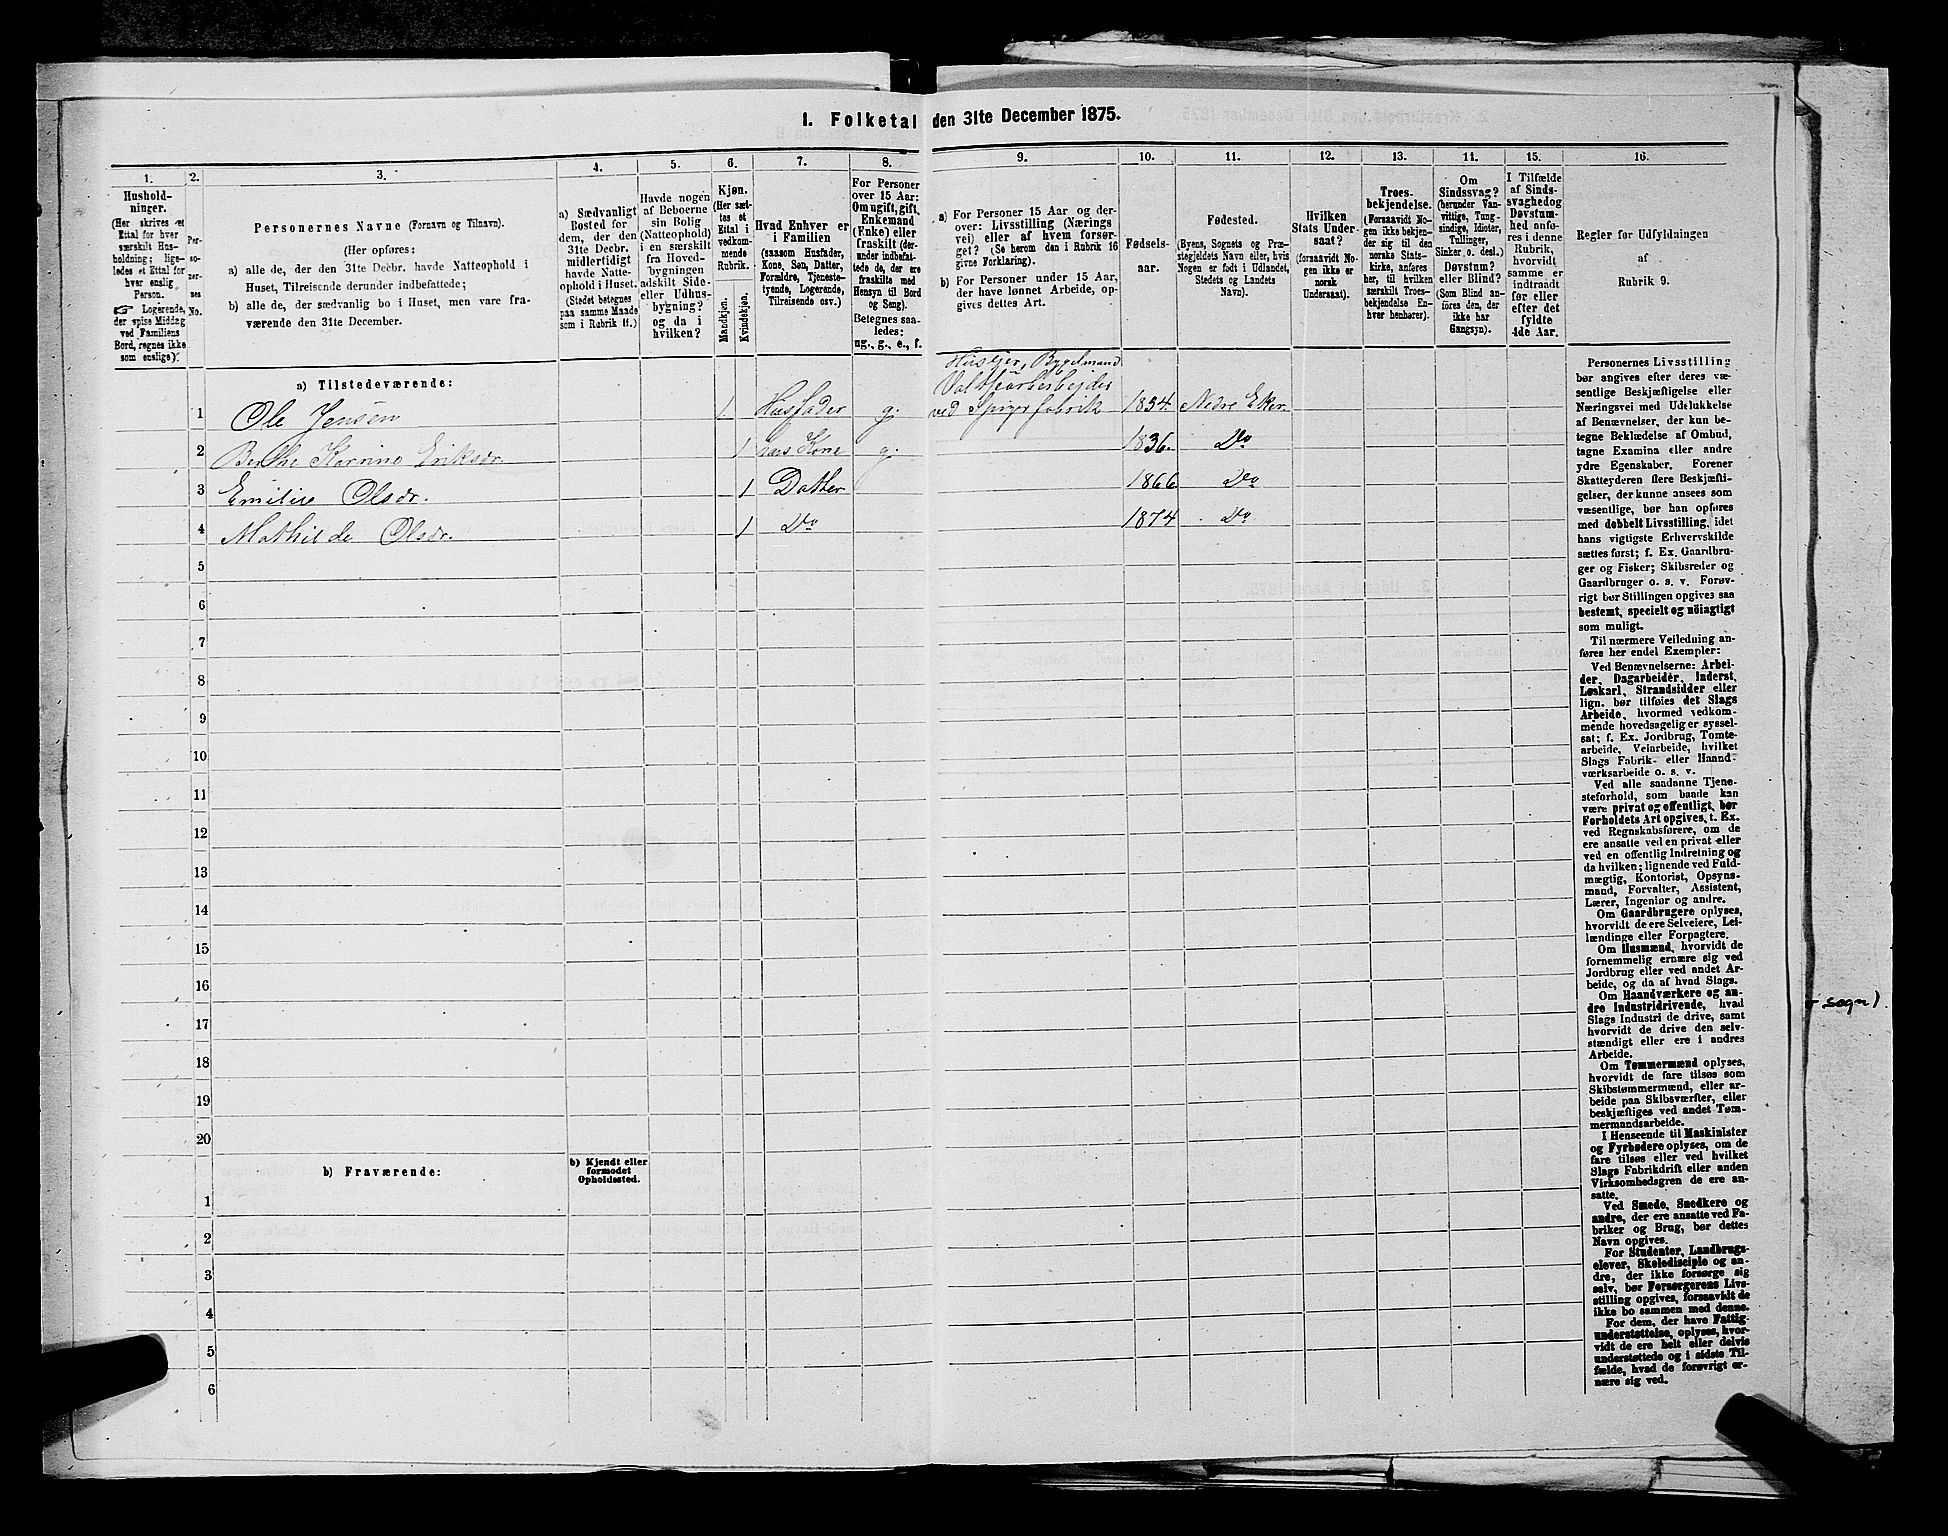 I. Folketal den 31te December 1875.
1.
2.
3.
4.
5.
6.
7.
8.
9.
10.
11.
12.
13.
14.
15.
16.
Hushold-
ninger.
(Her skrives et
Ettal for hver
særskilt Hus-
holdning; lige-
ledes et Ettal for
hver enslig
Person.
☞ Logerende,
der spise Middag
ved Familiens
Bord, regnes ikke
som enslige).
Per-
so-
ner-
nes
No.
Personernes Navne (Fornavn og Tilnavn).
(Her opføres:
a) alle de, der den 31te Decbr. havde Natteophold i
Huset, Tilreisende derunder indbefattede;
b) alle de, der sædvanlig bo i Huset, men vare fra-
værende den 31te December.
a) Sædvanligt
Bosted for
dem, der den
31te Decbr.
midlertidigt
havde Natte-
ophold i Huset.
(Stedet betegnes
paa samme Maade
som i Rubrik 11.)
Havde nogen
af Beboerne
sin Bolig
(Natteophold)
i en særskilt
fra Hoved-
bygningen
adskilt Side-
eller Udhus-
bygning?
og da i
hvilken?
Kjøn.
(Her sæt-
tes et
Ettal i
vedkom-
mende
Rubrik.
Mandkjøn.
Kvindekjøn.
Hvad Enhver er
i Familien
(saasom Husfader,
Kone, Søn, Datter,
Forældre, Tjeneste-
tyende, Logerende,
Tilreisende osv.)
For Personer
over 15 Aar:
Om ugift, gift,
Enkemand
(Enke) eller
fraskilt (der-
under indbefat-
tede de, der ere
fraskilte med
Hensyn til Bord
og Seng).
Betegnes saa-
ledes:
ug., g., e., f.
a) For Personer 15 Aar og der-
over: Livsstilling (Nærings
vei) eller af hvem forsør-
get? (Se herom den i Rubrik 16
givne Forklaring).
b) For Personer under 15 Aar,
der have lønnet Arbeide, op-
gives dettes Art.
Fødsels-
aar.
Fødested.
(Byens, Sognets og Præ-
stegjeldets Navn eller, hvis
Nogen er født i Udlandet,
Stedets og Landets
Navn).
Hvilken
Stats Under-
saat?
(forsaavidt No-
gen ikke er
norsk
Undersaat).
Troes-
bekjendelse.
(Forsaavidt No-
gen ikke bekjen-
der sig til den
norske Stats-
kirke, anføres
her, til hvilken
særskilt Troes-
bekjendelse En-
hver henhører).
Om
Sindssvag?
(herunder Van-
vittige, Tung-
sindige, Idioter,
Tullinger,
Sinker o. desl.)
Døvstum?
eller Blind?
(Som Blind an-
føres den, der
ikke har
Gangsyn).
I Tilfælde
af Sinds-
svaghed og
Døvstum-
hed anfø-
res i denne
Rubrik,
hvorvidt
samme er
indtraadt
før eller
efter det
fyldte
4de Aar.
Regler for Udfyldningen
af
Rubrik 9.
a) Tilstedeværende:
Huseier, Bygselmand
Valdsearbeider
1 Ole Jensen 1 Husfader g. ved Spigerfabrik 1834. Nedre Eker.
2 Berthe Karine Eriksdr. 1 hans Kone g. 1836. Do
3 Emilie Olsdr. 1 Datter 1866 Do
4 Mathilde Olsdr. 1 Do 1874 Do
5
6
7
8
9
10
11
12
13
14
15
16
17
18
19
20
b) Fraværende:
b) Kjendt eller
formodet
Opholdssted.
1
2
3
4
5
6
Personernes Livsstilling
bør angives efter deres væ-
sentlige Beskjæftigelse eller
Næringsvei med Udelukkelse
af Benævnelser, der kun be-
tegne Beklædelse af Ombud,
tagne Examina eller andre
ydre Egenskaber. Forener
Skatteyderen flere Beskjæfti-
gelser, der kunne ansees som
væsentlige, bør han opføres
med dobbelt Livsstilling, idet
hans vigtigste Erhvervskilde
sættes først; f. Ex. Gaardbru-
ger og Fisker; Skibsreder og
Gaardbruger o. s. v. Forøv-
rigt bør Stillingen opgives saa
bestemt, specielt og nöiagtigt
som muligt.
Til nærmere Veiledning an-
føres her endel Exempler:
Ved Benævnelserne: Arbei-
der, Dagarbeider, Inderst,
Løskarl, Strandsidder eller
lign. bør tilføies det Slags
Arbeide, hvormed vedkom-
mende hovedsagelig er syssel-
sat; f. Ex. Jordbrug, Tomte-
arbeide, Veiarbeide, hvilket
Slags Fabrik- eller Haand-
værksarbeide o. s. v.
Ved alle saadanne Tjene-
steforhold, som baade kan
være privat og offentligt, bør
Forholdets Art opgives, t. Ex.
ved Regnskabsførere, om de
ere ansatte ved en privat eller
ved en offentlig Indretning og
da hvilken; lignende ved Fuld-
mægtig, Kontorist, Opsyns-
mand, Forvalter, Assistent,
Lærer, Ingeniør og andre.
Om Gaardbrugere oplyses,
hvorvidt de ere Selveiere, Lei-
lændinge eller Forpagtere.
Om Husmænd, hvorvidt de
fornemmelig ernære sig ved
Jordbrug eller ved andet Ar-
beide, og da af hvad Slags.
Om Haandværkere og an-
dre Industridrivende, hvad
Slags Industri de drive, samt
hvorvidt de drive den selv-
stændigt eller ere i andres
Arbeide.
Om Tømmermænd oplyses,
hvorvidt de fare tilsøs som
Skibstømmermænd, eller ar-
beide paa Skibsværfter, eller
beskjæftiges ved andet Tøm-
mermandsarbeide.
I Henseende til Maskinister
og Fyrbødere oplyses, om de
fare tilsøs eller ved hvilket
Slags Fabrikdrift eller anden
Virksomhedsgren de ere an-
satte.
Ved Smede, Snedkere og
andre, der ere ansatte ved Fa-
briker og Brug, bør dettes
Navn opgives.
For Studenter, Landbrugs-
elever, Skoledisciple og an-
dre, der ikke forsørge sig
selv, bør Forsørgerens Livs-
stilling opgives, forsaavidt de
ikke bo sammen med denne.
For dem, der have Fattig-
understøttelse, oplyses, hvor-
vidt de ere helt eller delvis
understøttede og i sidste Til-
fælde, hvad de forøvrigt er-
nære sig ved.
sogn).